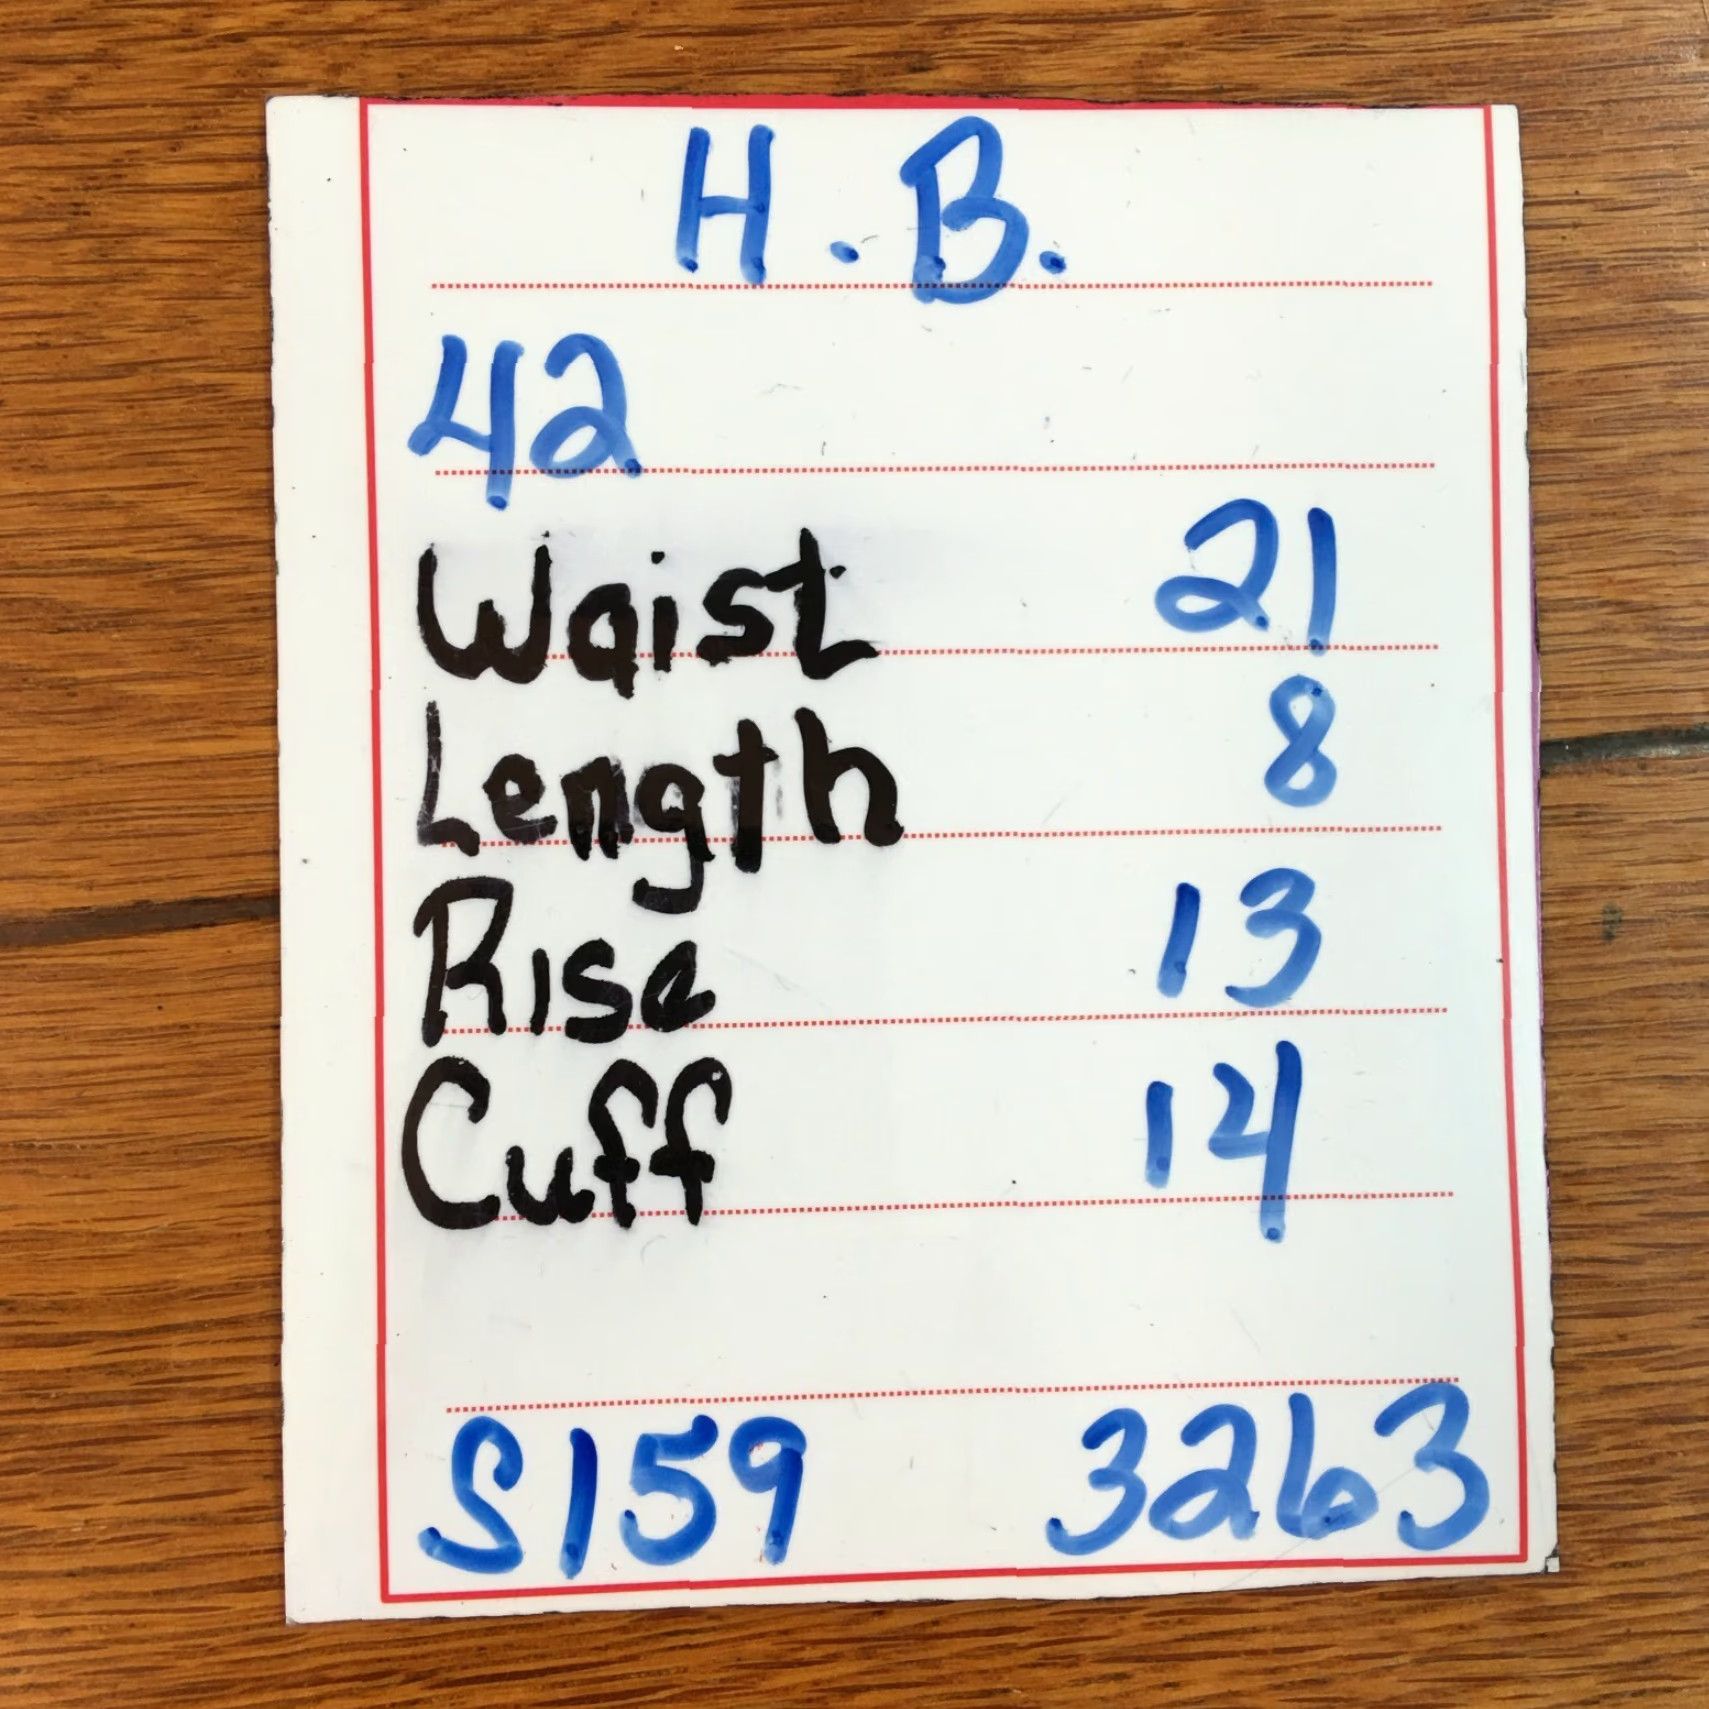 H.B.
42
Waist 21
Length 8
Rise 13
Cuff 14
S159 3263